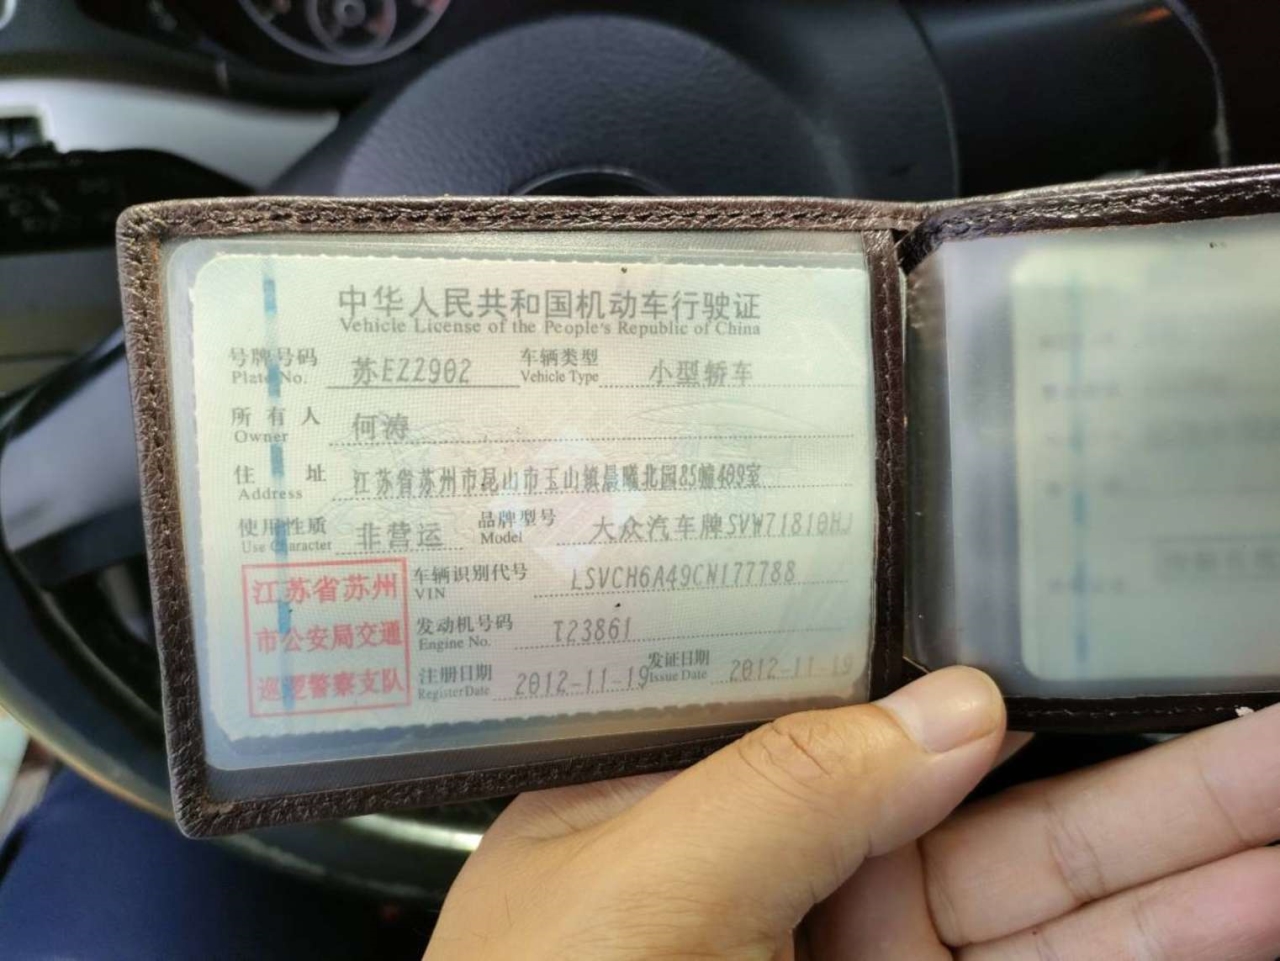 中华人民共和国机动车行驶证
Vehicle License of the People's Republic of China
号牌号码 苏EZ2902 车辆类型 小型轿车
Plate No. Vehicle Type
所有人 何涛
Owner
住址 江苏省苏州市昆山市玉山镇晨曦北园85幢409室
Address
使用性质 非营运 品牌型号 大众汽车牌SVW71810HJ
Use Character Model
江苏省苏州
市公安局交通
巡逻警察支队
车辆识别代号 LSVCH6A49CN177788
VIN
发动机号码 T23861
Engine No.
注册日期 2012-11-19 发证日期 2012-11-19
Register Date Issue Date